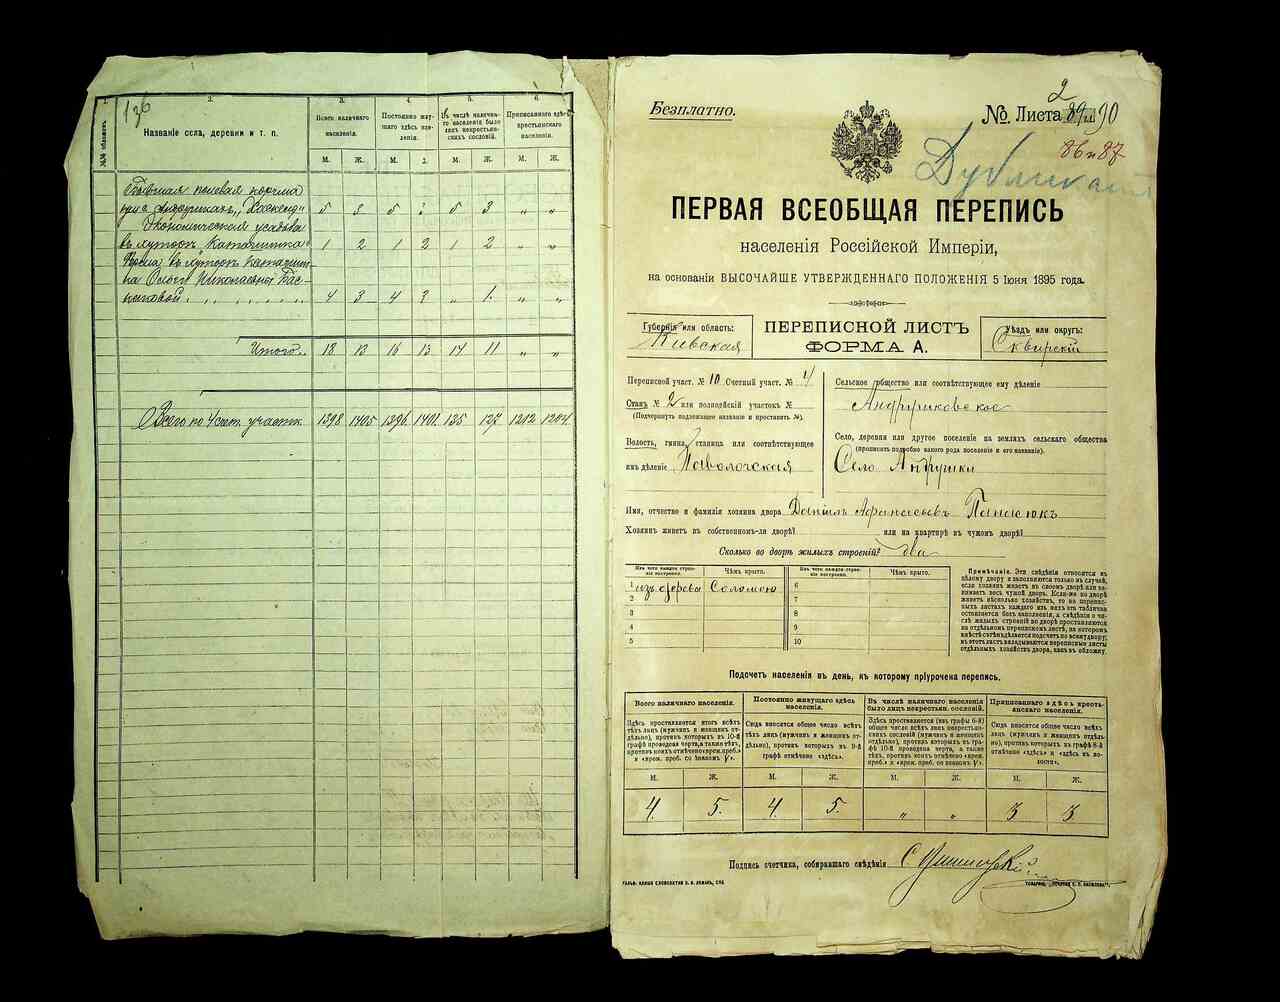 136
№№ области.
2.
3.
4.
5.
6.
Названіе села, деревни и т. п.
Всего наличнаго населенія.
Постоянно живущаго здѣсь населенія.
Въ числѣ наличнаго населенія было лицъ некрестьянскихъ сословій.
Приписаннаго здѣсь крестьянскаго населенія.
М. Ж. М. Ж. М. Ж. М. Ж.
5 3 5 5 3 „ „
Экономическая усадьба
въ хуторѣ 1 2 1 2 1 2 „ „
въ хуторѣ
Ольги Николаевны
4 3 4 3 „ 1. „ „
Итого.. 18 13 16 13 14 11 „ „
Всего по 4 счет. участк. 1398 1405 1396. 1401. 135 127 1212 1204.
Безплатно.
№ Листа 2
89 90
86 и 87
Дубликатъ
ПЕРВАЯ ВСЕОБЩАЯ ПЕРЕПИСЬ
населенія Россійской Имперіи,
на основаніи ВЫСОЧАЙШЕ УТВЕРЖДЕННАГО ПОЛОЖЕНІЯ 5 Іюня 1895 года.
Губернія или область:
Кіевская
ПЕРЕПИСНОЙ ЛИСТЪ
ФОРМА А.
Уѣздъ или округъ:
Сквирскій
Переписной участ. № 10 Счетный участ. № 4
Станъ № 2 или полицейскій участокъ №
(Подчеркнуть подлежащее названіе и проставить №).
Волость, гмина, станица или соотвѣтствующее
имъ дѣленіе Паволочская
Сельское общество или соотвѣтствующее ему дѣленіе
Андрушковское
Село, деревня или другое поселеніе на земляхъ сельскаго общества
(прописать подробно какого рода поселеніе и его названіе).
Село Андрушки
Имя, отчество и фамилія хозяина двора Даніилъ Афанасьевъ Панасюкъ
Хозяинъ живетъ въ собственномъ-ли дворѣ? или на квартирѣ въ чужомъ дворѣ?
Сколько во дворѣ жилыхъ строеній? два
Изъ чего каждое строеніе построено.
Чѣмъ крыто.
Изъ чего каждое строеніе построено.
Чѣмъ крыто.
1 изъ дерева Соломою 6
2 7
3 8
4 9
5 10
Примѣчаніе. Эти свѣдѣнія относятся къ
цѣлому двору и заполняются только въ случаѣ,
если хозяинъ живетъ въ своемъ дворѣ или занимаетъ
весь чужой дворъ. Если-же во дворѣ
живетъ нѣсколько хозяйствъ, то на переписныхъ
листахъ каждаго изъ нихъ эта табличка
оставляется безъ заполненія, а свѣдѣнія о числѣ
жилыхъ строеній во дворѣ проставляются
на отдѣльномъ переписномъ листѣ, на которомъ
вмѣстѣ съ тѣмъ дѣлается подсчетъ по всему двору;
въ этотъ листъ вкладываются переписные листы
отдѣльныхъ хозяйствъ двора, какъ въ обложку.
Подсчетъ населенія въ день, къ которому пріурочена перепись.
Всего наличнаго населенія.
Постоянно живущаго здѣсь населенія.
Въ числѣ наличнаго населенія было лицъ некрестьян. сословій.
Приписаннаго здѣсь крестьянскаго населенія.
Здѣсь проставляется итогъ всѣхъ тѣхъ лицъ (мужчинъ и женщинъ отдѣльно), противъ которыхъ въ 10-й графѣ проведена черта, а также тѣхъ, противъ коихъ отмѣчено «врем. преб.» и «врем. преб. со знакомъ V».
Сюда вносятъ общее число всѣхъ тѣхъ лицъ (мужчинъ и женщинъ отдѣльно), противъ которыхъ въ 9-й графѣ отмѣчено «здѣсь».
Здѣсь проставляется (изъ графы 6-й) общее число всѣхъ лицъ некрестьянскихъ сословій (мужчинъ и женщинъ отдѣльно), противъ которыхъ въ графѣ 10-й проведена черта, а также тѣхъ, противъ коихъ отмѣчено «врем. преб.» и «врем. преб. со знакомъ V».
Сюда вносятъ общее число всѣхъ лицъ (мужчинъ и женщинъ отдѣльно), противъ которыхъ въ графѣ 8-й отмѣчено «здѣсь» и «здѣсь въ волости».
М. Ж. М. Ж. М. Ж. М. Ж.
4. 5. 4. 5. „ „ 3 3
Подпись счетчика, собиравшаго свѣдѣнія